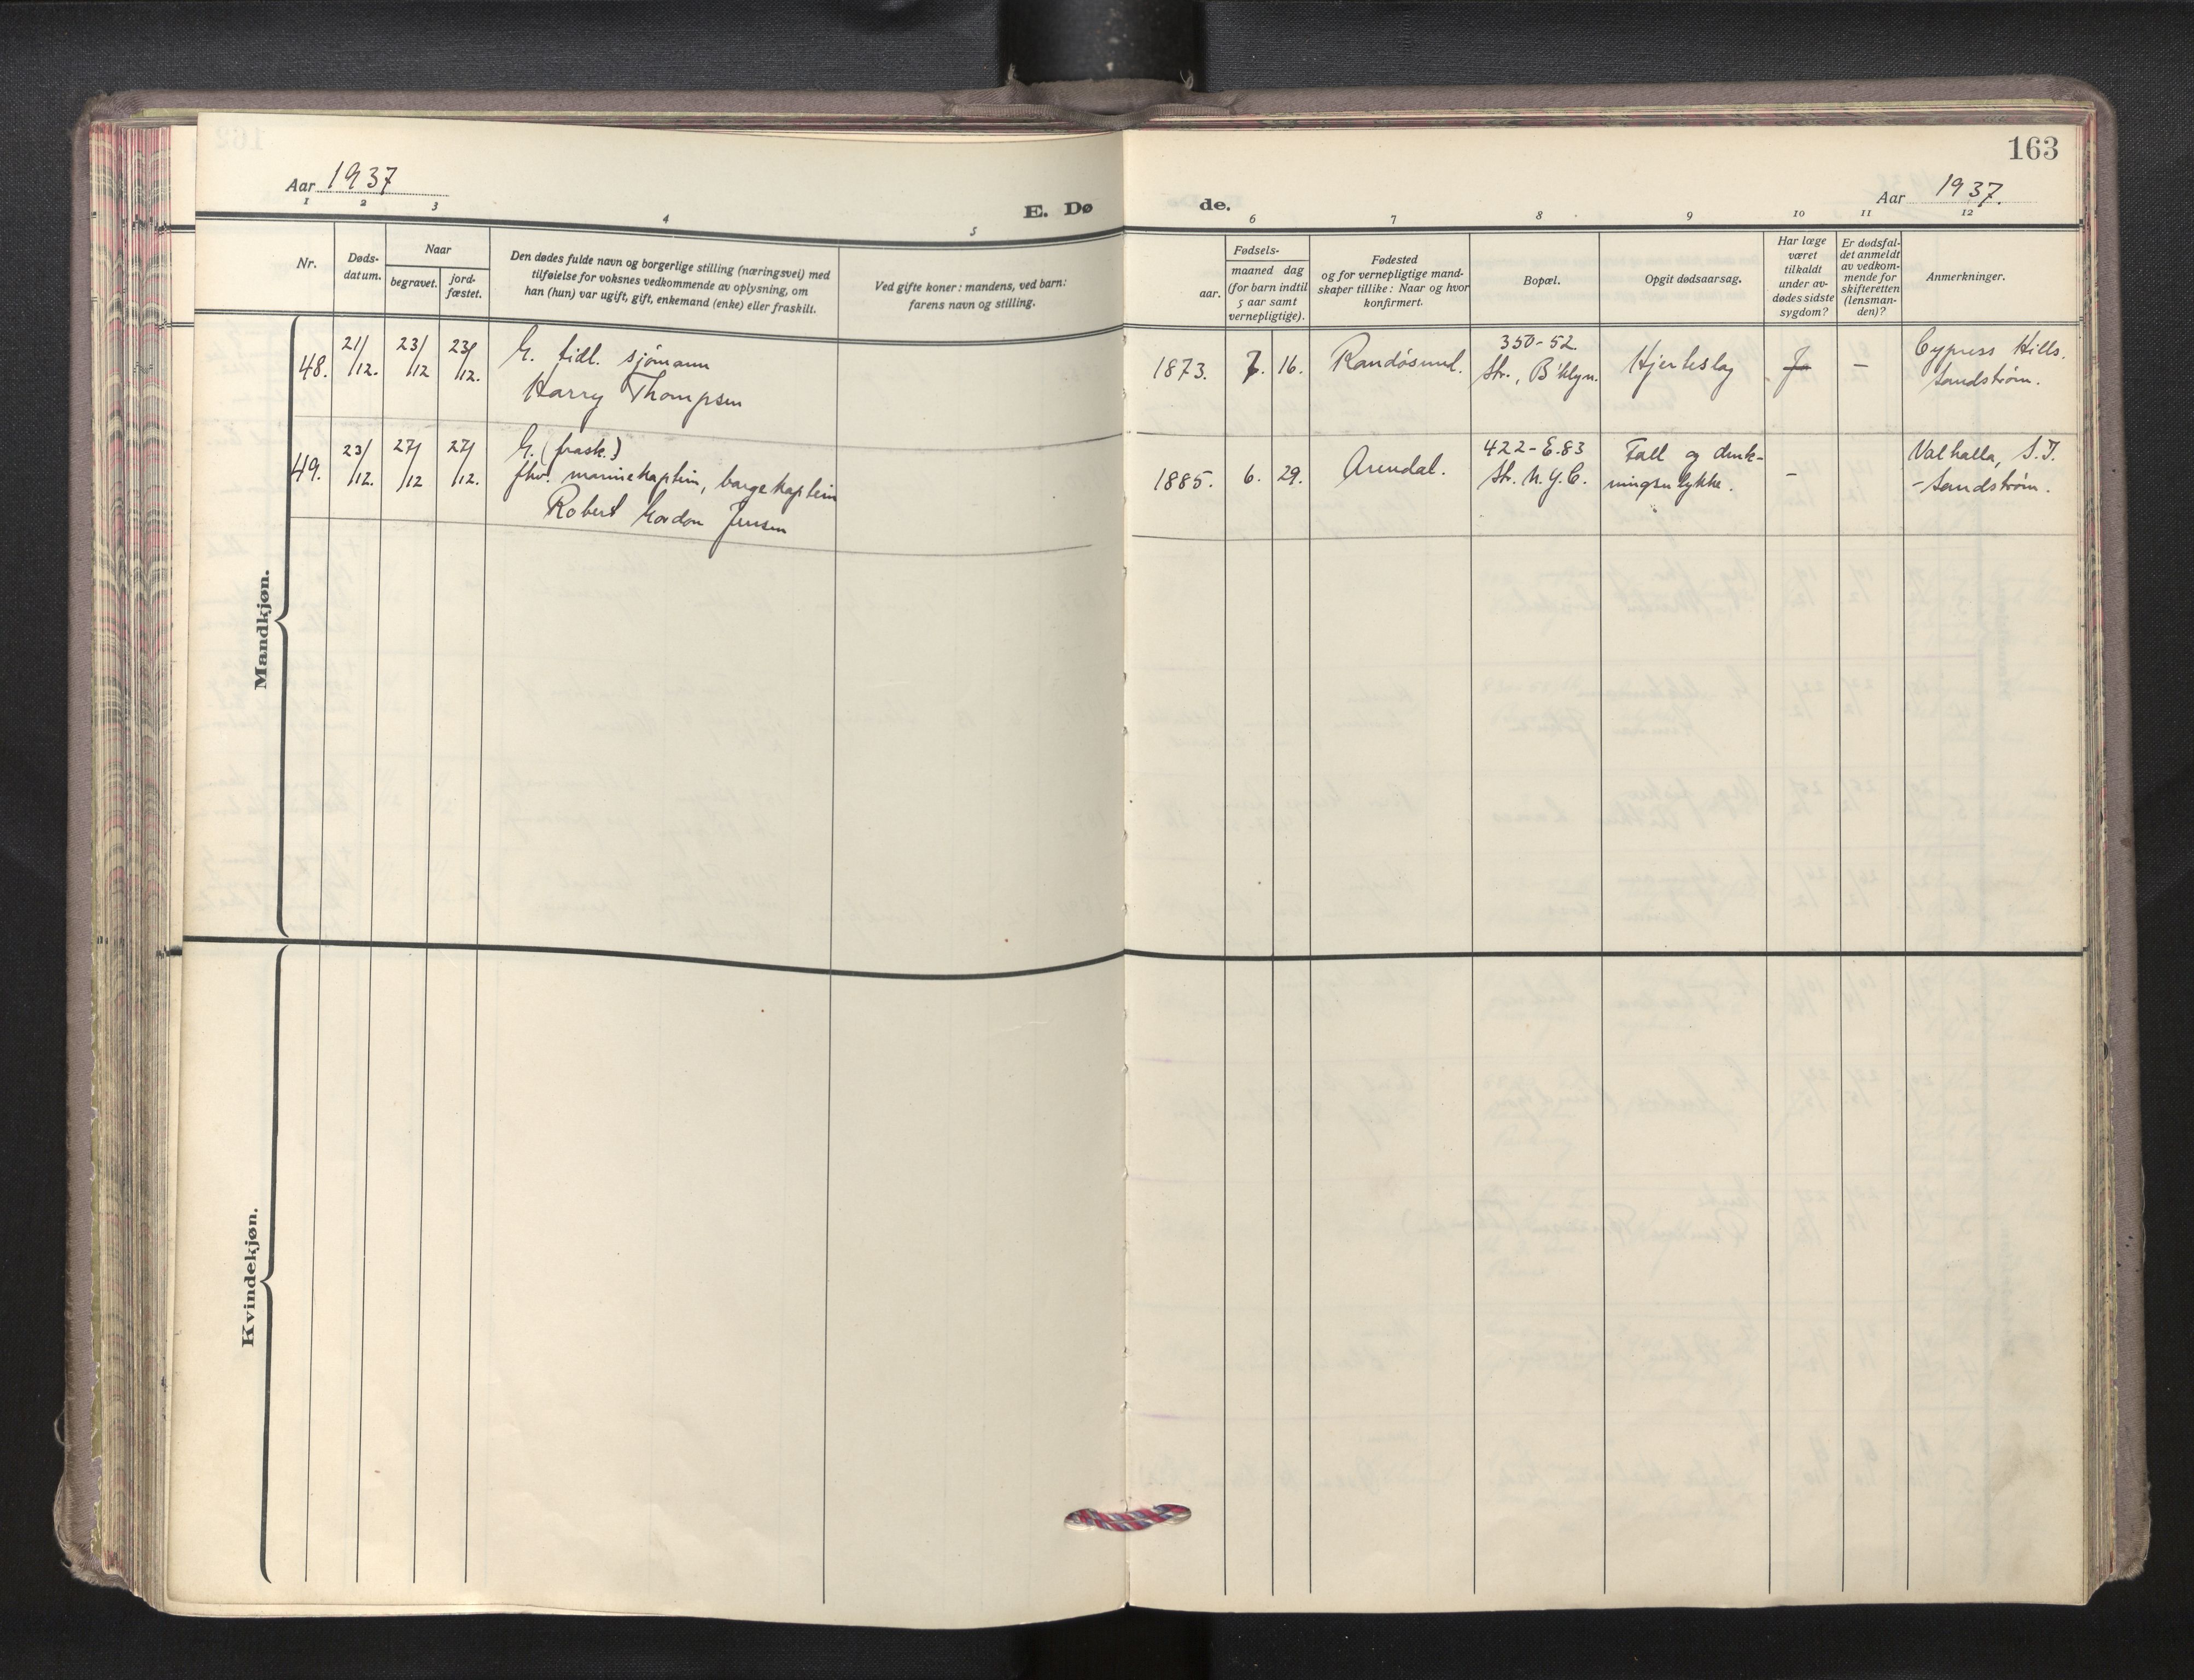 163
Aar 1937
Aar 1937.
E. Dø
de.
1 2 3 4 5 6 7 8 9 10 11 12
Nr.
Døds-
datum.
Naar
begravet.
jord-
fæstet.
Den dødes fulde navn og borgerlige stilling (næringsvei) med
tilføielse for voksnes vedkommende av oplysning, om
han (hun) var ugift, gift, enkemand (enke) eller fraskilt.
Ved gifte koner: mandens, ved barn:
farens navn og stilling.
Fødsels-
aar.
maaned dag
(for barn indtil
5 aar samt
vernepligtige).
Fødested
og for vernepligtige mand-
skaper tillike: Naar og hvor
konfirmert.
Bopæl.
Opgit dødsaarsag.
Har læge
været
tilkaldt
under av-
dødes sidste
sygdom?
Er dødsfal-
det anmeldt
av vedkom-
mende for
skifteretten
(lensman-
den)?
Anmerkninger.
Mandkjøn.
48.
21/12.
23/12
23/12.
G. tidl. sjömann
Harry Thompsen
1873.
7.
16.
Randösund.
350-52.
Str., B'klyn.
Hjerteslag
J
–
Cypress Hills.
Sandström.
49.
23/12.
27/12
27/12.
G. (frask.)
fhv. marinekaptein, bargekaptein
Robert Gordon Jensen
1885.
6.
29.
Arendal.
422-E.83
Str. N.Y.C.
Fall og druk-
ningsulykke.
–
Valhalla, S.I.
-Sandström.
Kvindekjøn.